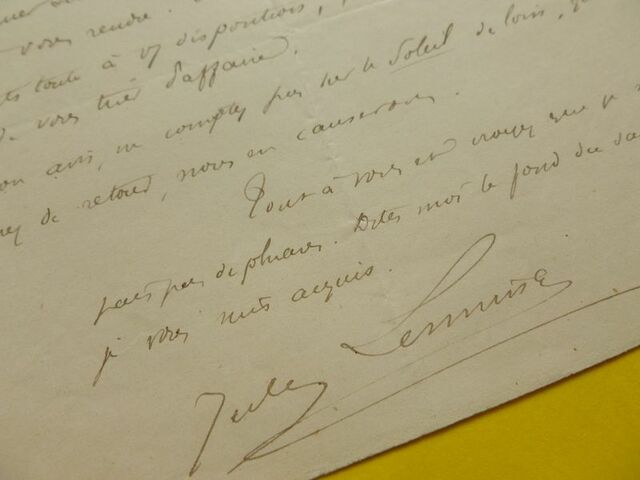 vous rendre.
toute à vos dispositions,
de vous tirer d'affaire.
mon avis, ne comptez pas sur le Soleil de loin,
de retour, nous en causerons.
Tout à vous et croyez que je
pas de phrases. Dites moi le fond du
je vous suis acquis.
Jules Lermina